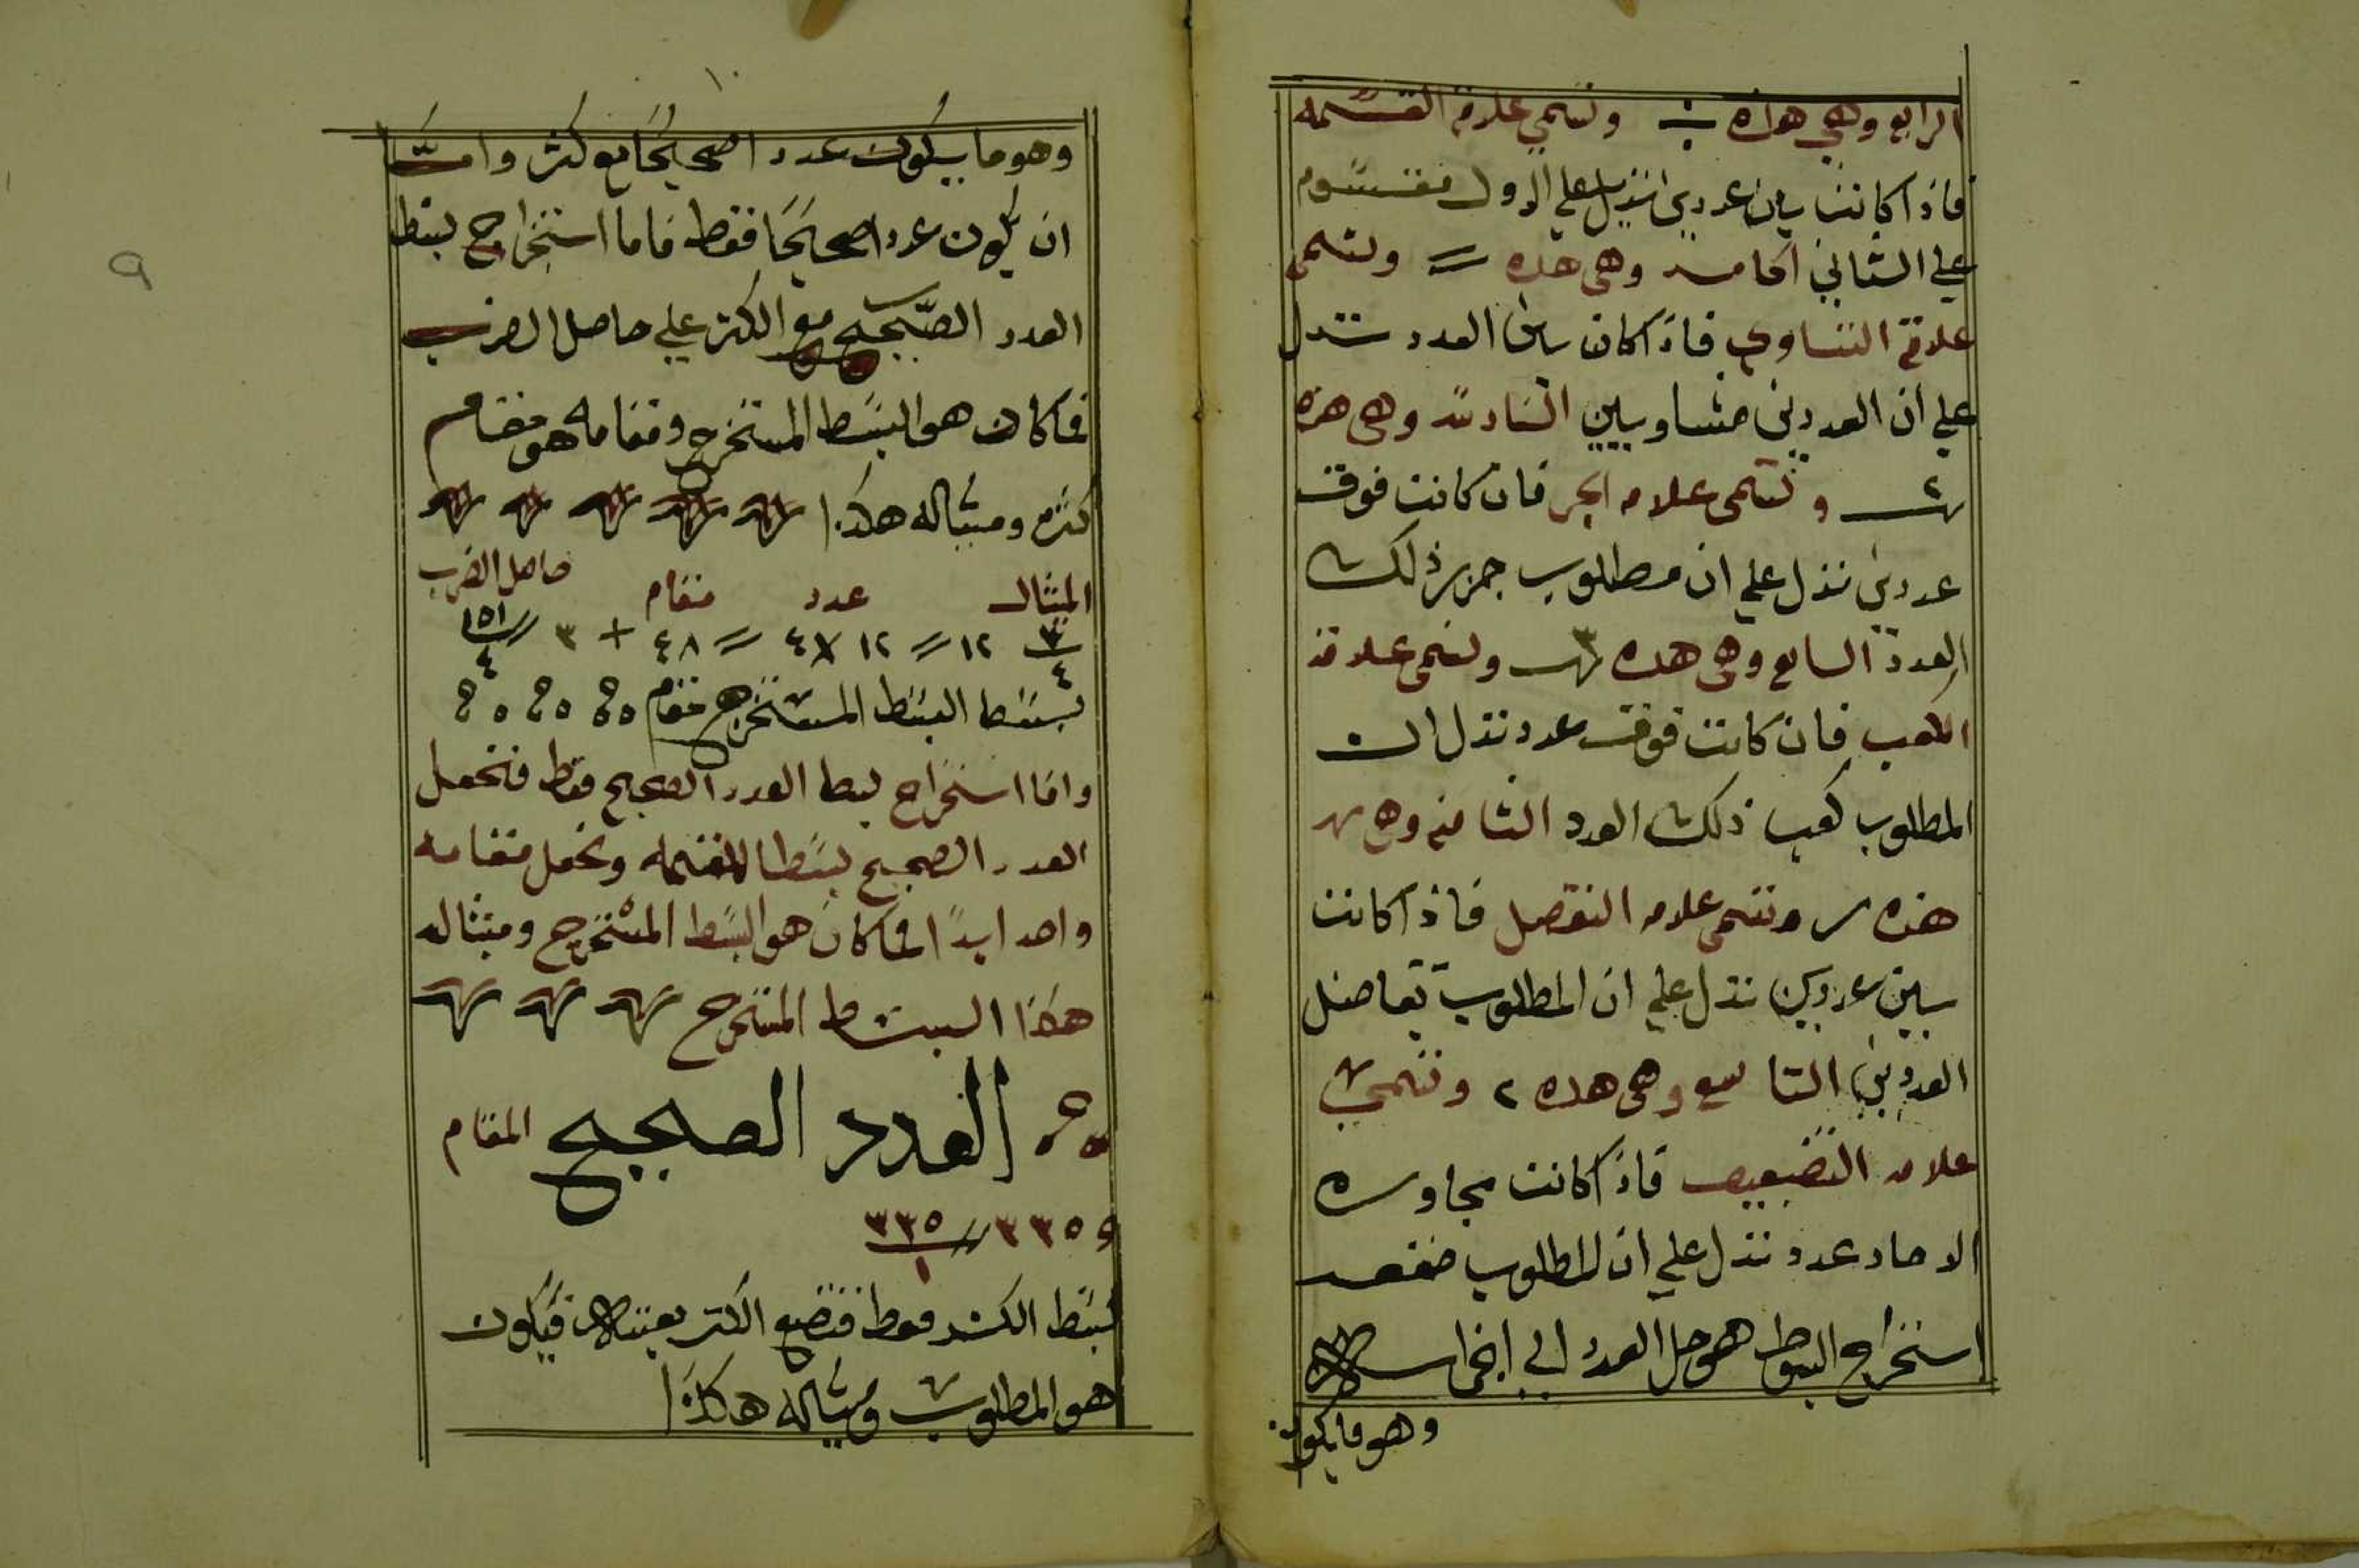 الرابع وهي هذه ÷ وتسمي علامة القسمه
فاذا كانت بين عددين تدل علي ان الاول مقسوم
علي الثاني الخامسه وهي هذه = وتسمي
علامة التساوي فاذا كان بين العدد تدل
علي ان العددين متساويين السادسه وهي هذه
وتسمي علامه الجر فان كانت فوق
عددين تدل علي ان مطلوب جزر ذلك
العدد السابع وهي هذه وتسمي علامة
الكعب فان كانت فوق عدد تدل ان
المطلوب كعب ذلك العدد الثامنه وهي
هذه وتسمي علامه التفضل فاذا كانت
بين عددين تدل علي ان المطلوب تفاضل
العددين التاسع وهي هذه ٢ وتسمي
علامه التضعيف فاذا كانت مجاوره
الاحاد عدد تدل علي ان المطلوب ضعفه
استخراج البسوط هو حل العدد الي اجزاء
وهو ما يكون
١٠
وهو ما يكون عددا صحيحا مع كسر واما
ان يكون عددا صحيحا فقط فاما استخراج بسط
العدد الصحيح مع الكسر علي حاصل الضرب
فما كان هو البسط المستخرج ومقامه هو مقام
كسره ومثاله هكذا
المثال عدد مقام حاصل الضرب
٣/٤ ١٢ = ١٢ × ٤ = ٤٨ + ٣ = ١٥١/٤
بسط البسط المستخرج مقام
واما استخراج بسط العدد الصحيح فقط فتجعل
العدد الصحيح بسطا للقسمه وتجعل مقامه
واحد ابدا فما كان هو البسط المستخرج ومثاله
هكذا البسط المستخرج
العدد الصحيح المقام
٣٣٥ = ٣٣٥/١
بسط الكسر فقط فتضع الكسر بعينه فيكون
هو المطلوب ومثاله هكذا
٩